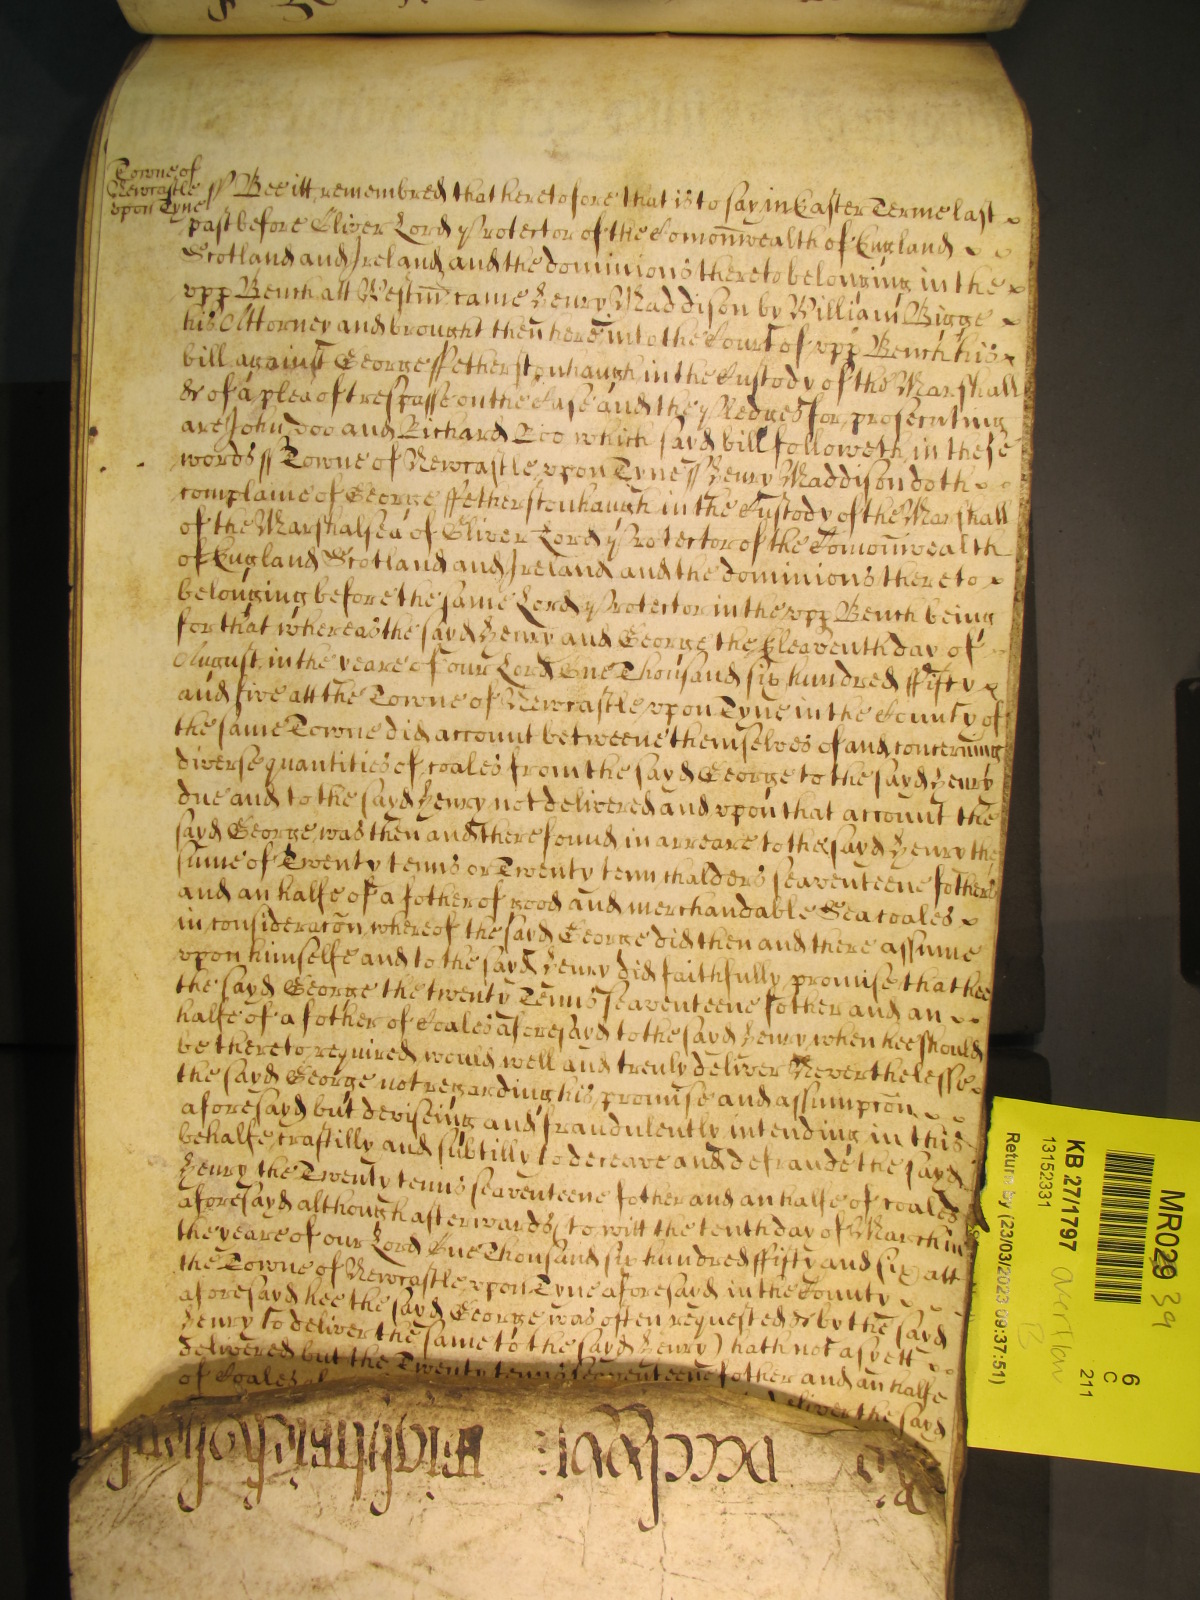 Towne of
Newcastle
vpon Tyne
ss Bee itt remembred that heretofore that is to say in Easter Terme last
past before Oliver Lord Protector of the Comonwealth of England
Scotland and Ireland and the dominions thereto belonging in the
vpp Bench att Westm came Henry Maddison by William Bigge
his Attorney and brought then here into the Court of vpp Bench his
bill against George ffetherstonhaugh in the Custody of the Marshall
&c of a plea of trespasse on the Case and the Pledges for prosecuting
are John Doo and Richard Roo which sayd bill followeth in these
words ss Towne of Newcastle vpon Tyne ss Henry Maddison doth
complaine of George ffetherstonhaugh in the Custody of the Marshall
of the Marshalsea of Oliver Lord Protector of the Comonwealth
of England Scotland and Ireland and the dominions thereto
belonging before the same Lord Protector in the vpp Bench being
for that whereas the sayd Henry and George the Eleaventh day of
August in the yeare of our Lord One Thousand six hundred ffifty
and five att the Towne of Newcastle vpon Tyne in the County of
the same Towne did account betweene themselves of and concerning
diverse quantities of coales from the sayd George to the sayd Henry
due and to the sayd Henry not delivered and vpon that account the
sayd George was then and there found in arreare to the sayd Henry the
sume of Twenty tenns or Twenty tenn chalders seaventeene fother
and an halfe of a fother of good and merchandable Sea coales
in consideracon whereof the sayd George did then and there assume
vpon himselfe and to the sayd Henry did faithfully promise that hee
the sayd George the twenty Tenns seaventeene fother and an
halfe of a fother of Coales aforesayd to the sayd Henry when hee should
be thereto required would well and truly deliver Neverthelesse
the sayd George not regarding his promise and assumpcon
aforesayd but deviseing and fraudulently intending in this
behalfe craftilly and subtilly to deceave and defraude the sayd
Henry the Twenty tenns seaventeene fother and an halfe of coales
aforesayd although afterwards (to witt the tenth day of March in
the yeare of our Lord One Thousand six hundred ffifty and six) att
the Towne of Newcastle vpon Tyne aforesayd in the County
aforesayd hee the sayd George was often requested &c by the sayd
Henry to deliver the same to the sayd Henry) hath not as yett
delivered but the Twenty tenns seaventeene fother and an halfe
of Coales
deliver the sayd
MR029 39
6
C
211
KB 27/1797
13152331
Return by (23/03/2023 09:37:51)